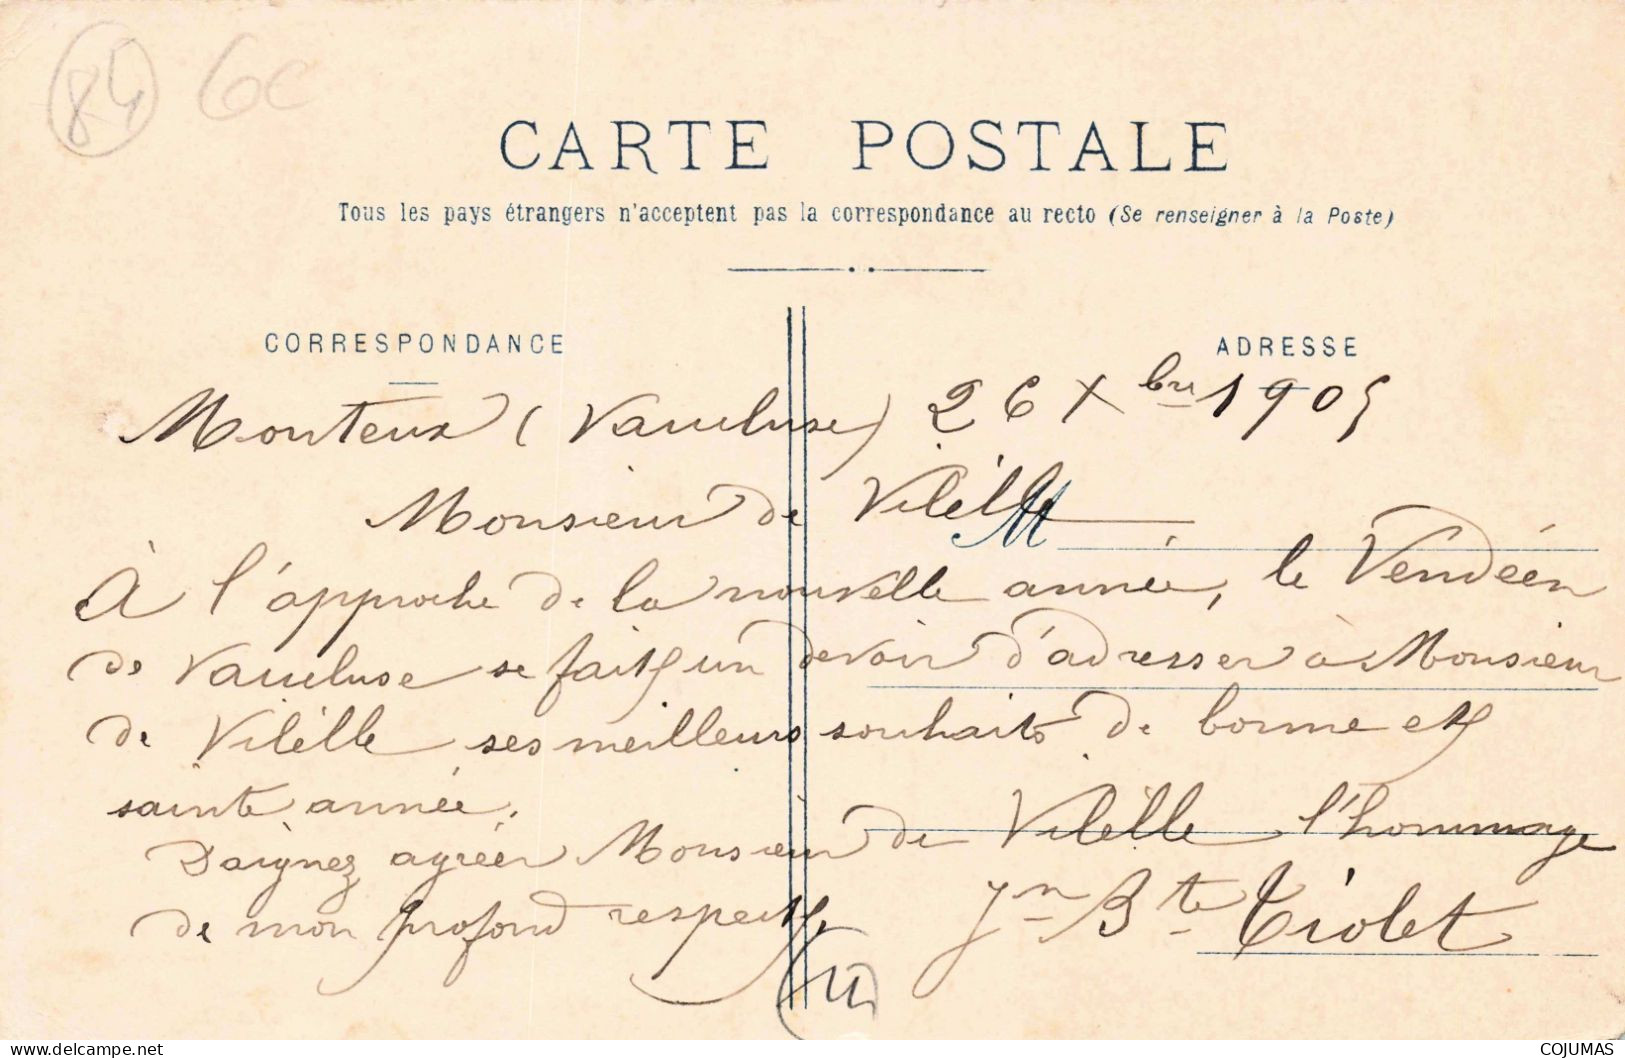 84 6c
CARTE POSTALE
Tous les pays étrangers n'acceptent pas la correspondance au recto (Se renseigner à la Poste)
CORRESPONDANCE
ADRESSE
Monteux (Vaucluse) 26 Xbre 1905
Monsieur de Vilèlle
M
À l'approche de la nouvelle année, le Vendéen
de Vaucluse se fait un devoir d'adresser à Monsieur
de Vilèlle ses meilleurs souhaits de bonne et
sainte année.
Daignez agréer Monsieur de Vilèlle l'hommage
de mon profond respect. Jn Bte Tiolet
www.delcampe.net
COJUMAS